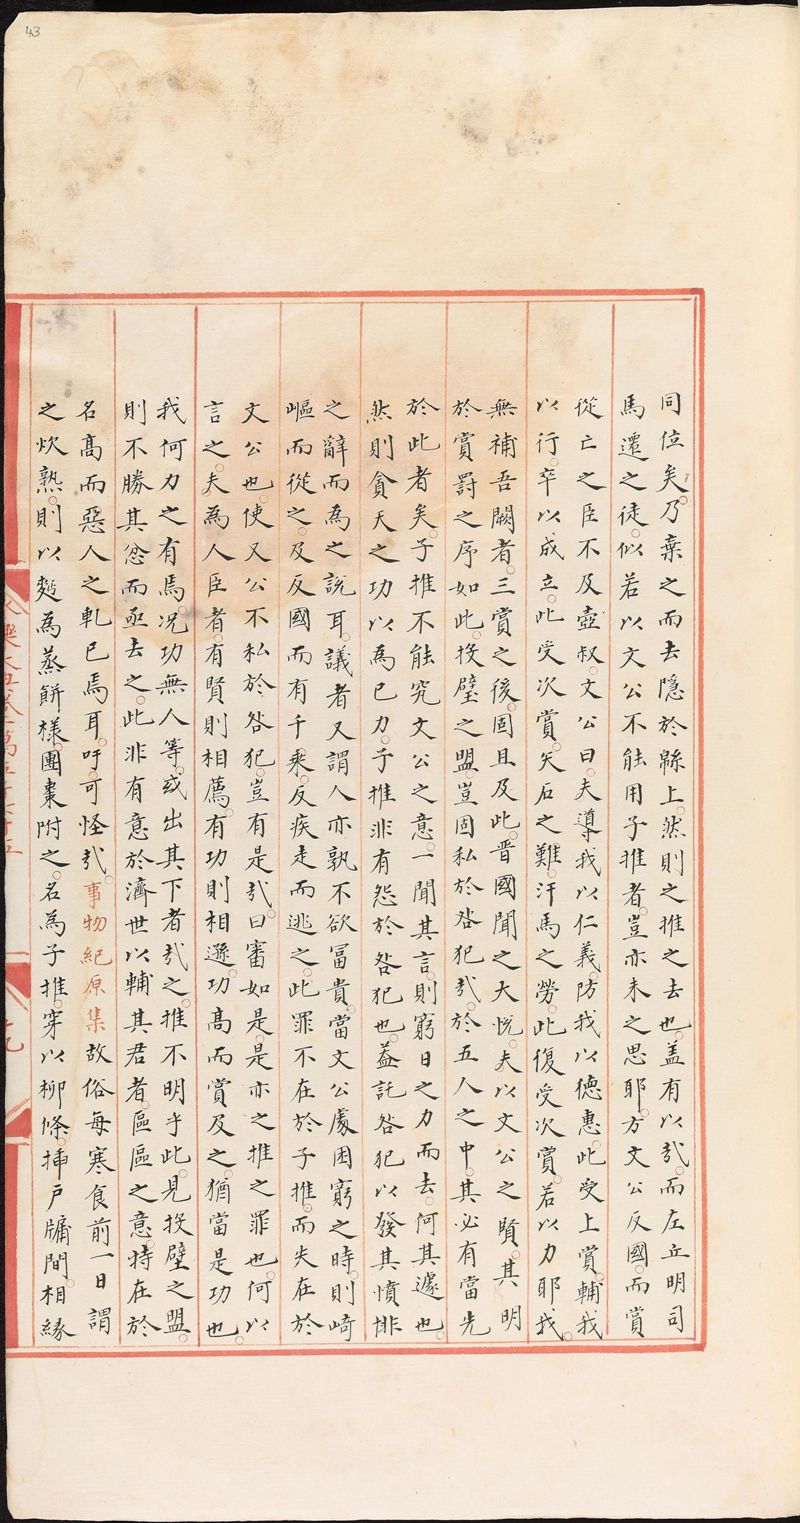 43
同位矣乃棄之而去隱於緜上然則之推之去也盖有以㢤而左丘明司
馬遷之徒似若以文公不能用子推者豈亦未之思耶方文公反國而賞
從亡之臣不及壺叔文公曰夫導我以仁義防我以德惠此受上賞輔我
以行卒以成立此受次賞矢石之難汗馬之勞此復受次賞若以力耶我
無補吾闕者三賞之後固且及此晋國聞之大悅夫以文公之賢其明
於賞罰之序如此投璧之盟豈固私於咎犯㢤於五人之中其必有當先
於此者矣子推不能究文公之意一聞其言則窮日之力而去何其遽也
然則貪天之功以為已力子推非有怨於咎犯也葢託咎犯以發其憤悱
之辭而為之說耳議者又謂人亦孰不欲冨貴當文公處困窮之時則崎
嶇而從之及反國而有千乘反疾走而逃之此罪不在於子推而失在於
文公也使文公不私於咎犯豈有是㢤曰審如是是亦之推之罪也何以
言之夫為人臣者有賢則相薦有功則相遜功髙而賞及之猶當是功也
我何力之有焉况功無人等或出其下者㢤之推不明乎此見投璧之盟
則不勝其忿而亟去之此非有意於濟世以輔其君者區區之意特在於
名髙而惡人之軋已焉耳吁可怪㢤事物紀原集故俗每寒食前一日謂
之炊熟則以麪為蒸餅樣團棗附之名為子推穿以柳條揷戸牖間相緣
永樂大典卷一萬五千 十五
十九